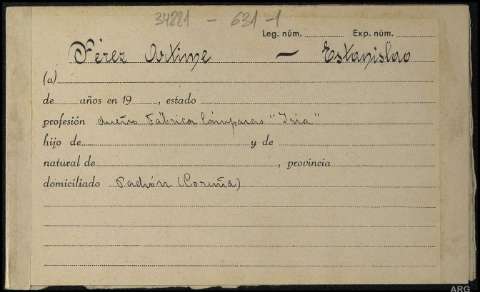 34221 - 631-1
Leg. núm. Exp. núm.
Pérez Artime — Estanislao
(a)
de años en 19 , estado
profesión dueño Fábrica Lámparas "Iria"
hijo de y de
natural de , provincia
domiciliado Padrón (Coruña)
ARG